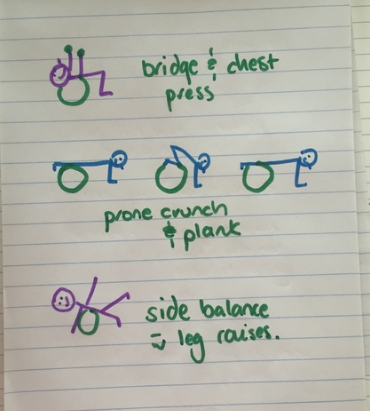 bridge & chest
press
prone crunch
& plank
side balance
leg raises.